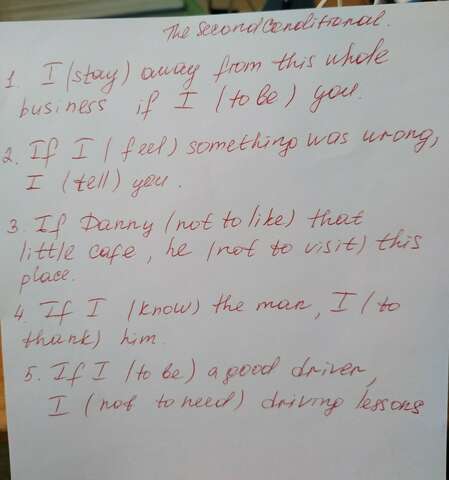 The Second Conditional.
1. I (stay) away from this whole
business if I (to be) you.
2. If I (feel) something was wrong,
I (tell) you.
3. If Danny (not to like) that
little cafe, he (not to visit) this
place.
4. If I (know) the man, I (to
thank) him.
5. If I (to be) a good driver,
I (not to need) driving lessons